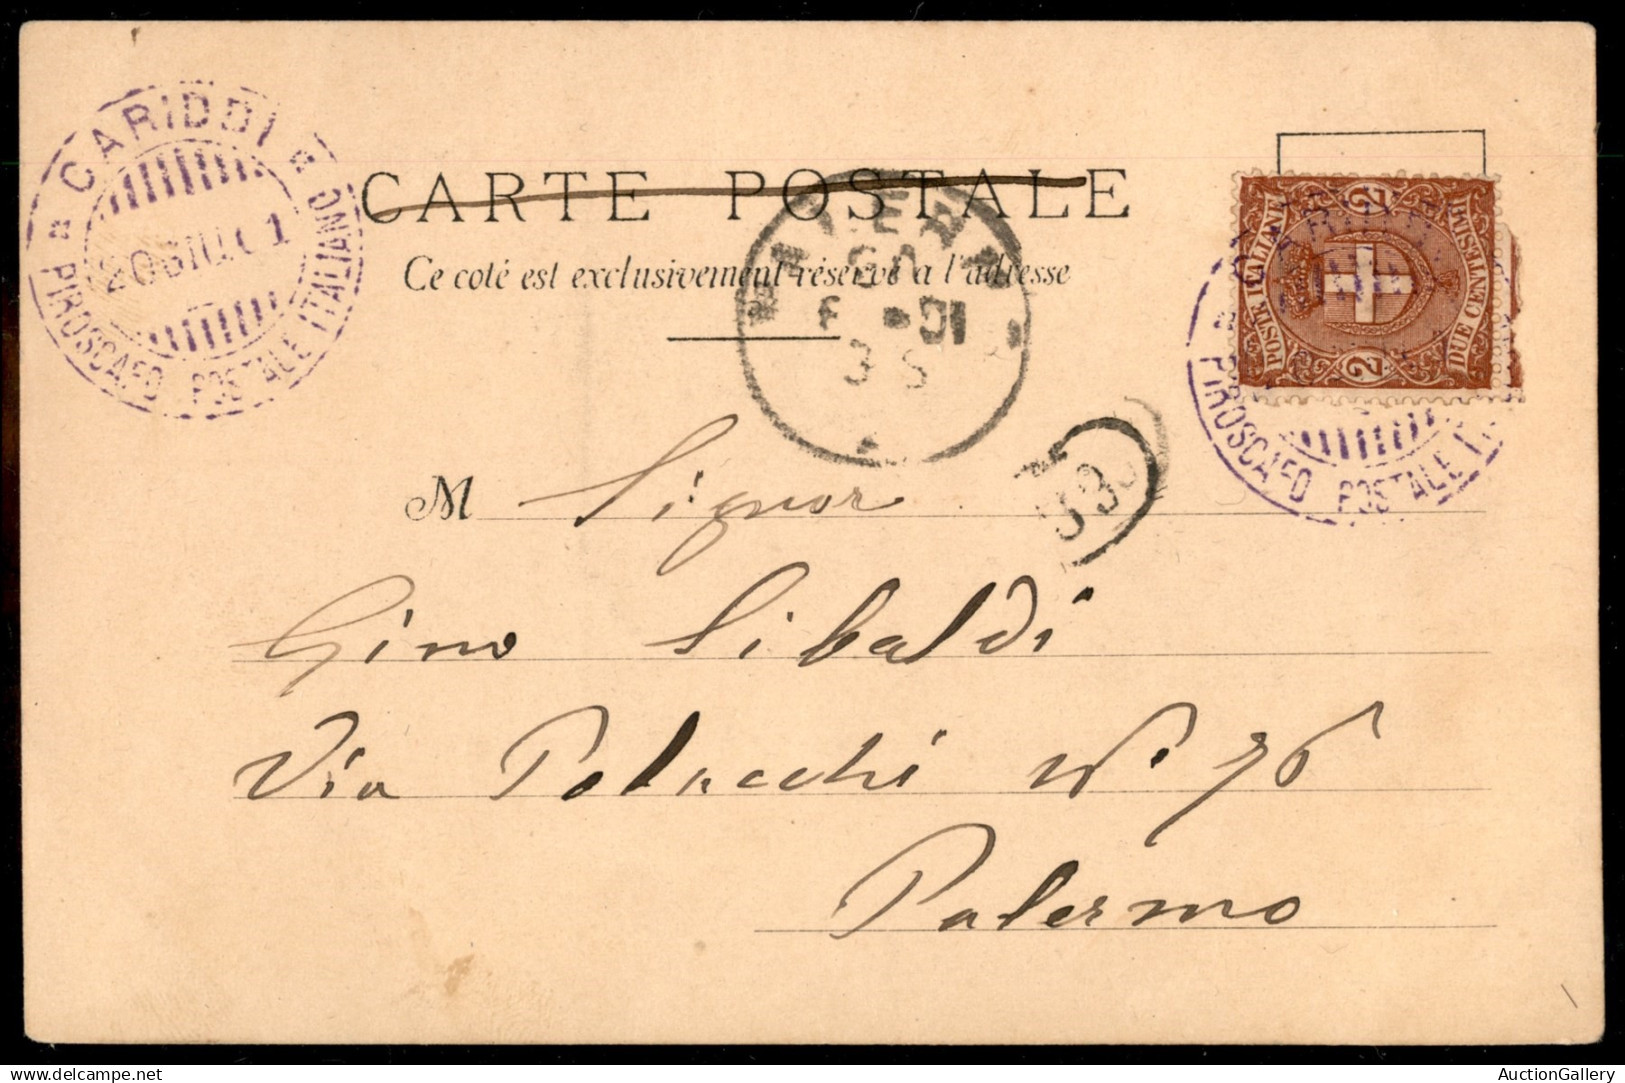 CARIDDI
PIROSCAFO POSTALE ITALIANO
20 GIU. 01
CARTE POSTALE
Ce coté est exclusivement réservé a l'adresse
POSTE ITALIANE
DUE CENTESIMI
2 2
PIROSCAFO POSTALE
M Signor
Gino Sibaldi
Via Polacchi No. 76
Palermo
AuctionGallery